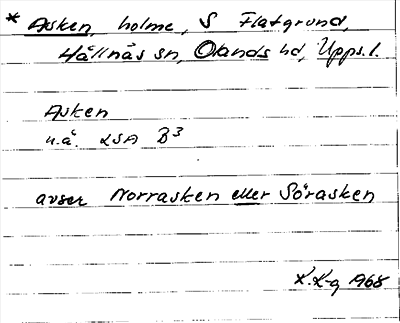 * Asken, holme, S Flatgrund,
Hållnäs sn, Olands hd, Upps. l.
Asken
u.å. LSA B3
avser Norrasken eller Sörasken
K.K-g 1968